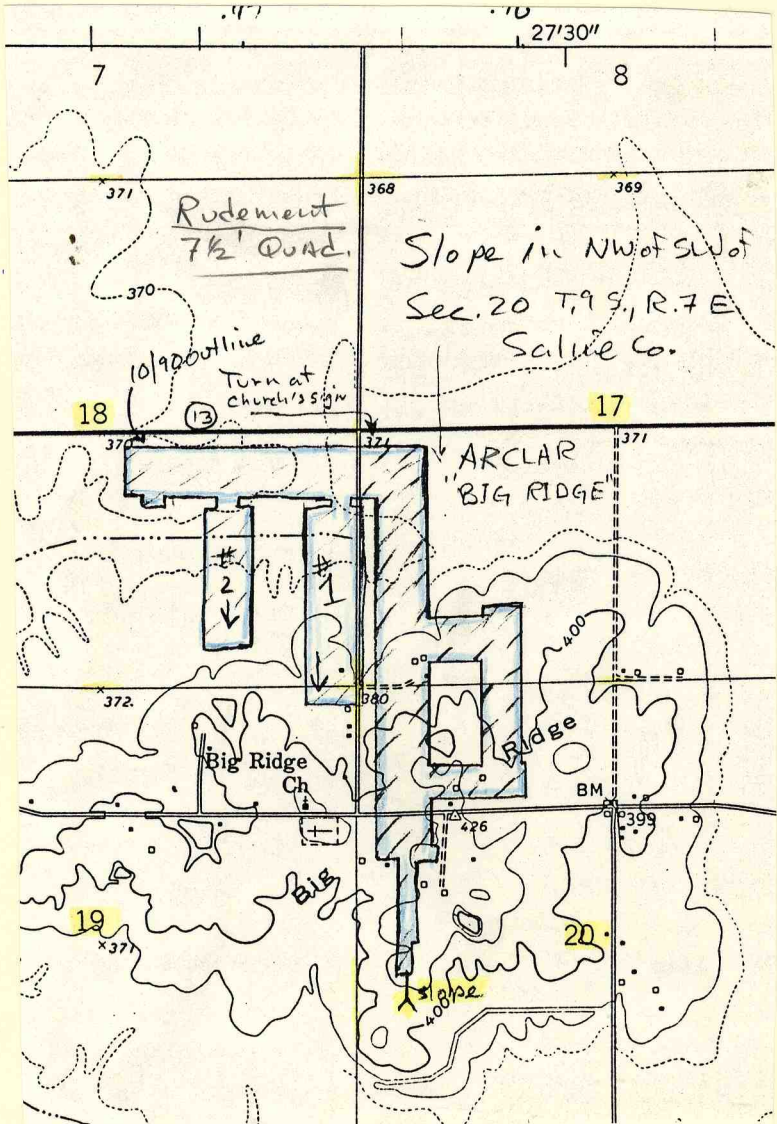 27'30"
7
8
371
368
369
Rudement
7½' QUAD.
Slope in NW of SW of
Sec. 20 T.9 S., R.7 E
Saline Co.
370
10/90 Outline
Turn at
church's sign
18
13
17
370
371
371
ARCLAR
"BIG RIDGE"
#2
#1
400
372
380
Ridge
Big Ridge
Ch
BM
426
399
Big
19
371
20
slope
400